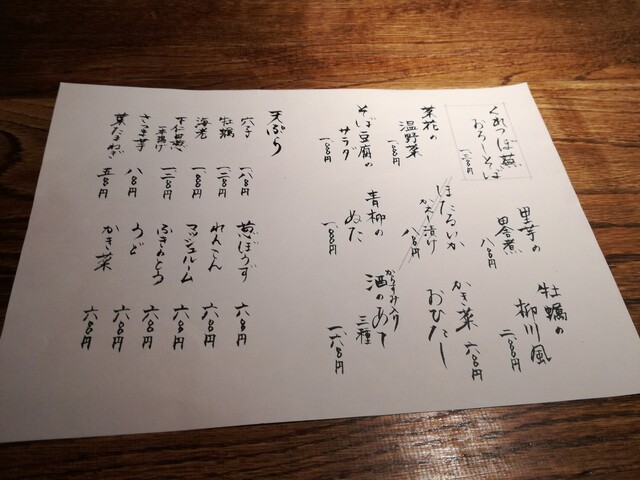 くれつぼ蕪
おろしそば
里芋の
田舎煮
八〇〇円
牡蠣の
柳川風
菜花の
温野菜
一〇〇〇円
ほたるいか
八〇〇円
かき菜
おひたし
六〇〇円
そば豆腐の
サラダ
一〇〇〇円
青柳の
ぬた
一〇〇〇円
からすみ入り
酒のあて
三種
一六〇〇円
天ぷら
穴子
一八〇〇円
牡蠣
一二〇〇円
海老
一〇〇〇円
下仁田葱
一本揚げ
一二〇〇円
さつま芋
八〇〇円
葉たまねぎ
五〇〇円
葱ぼうず
六〇〇円
れんこん
六〇〇円
マッシュルーム
六〇〇円
ふきのとう
六〇〇円
うど
六〇〇円
かき菜
六〇〇円